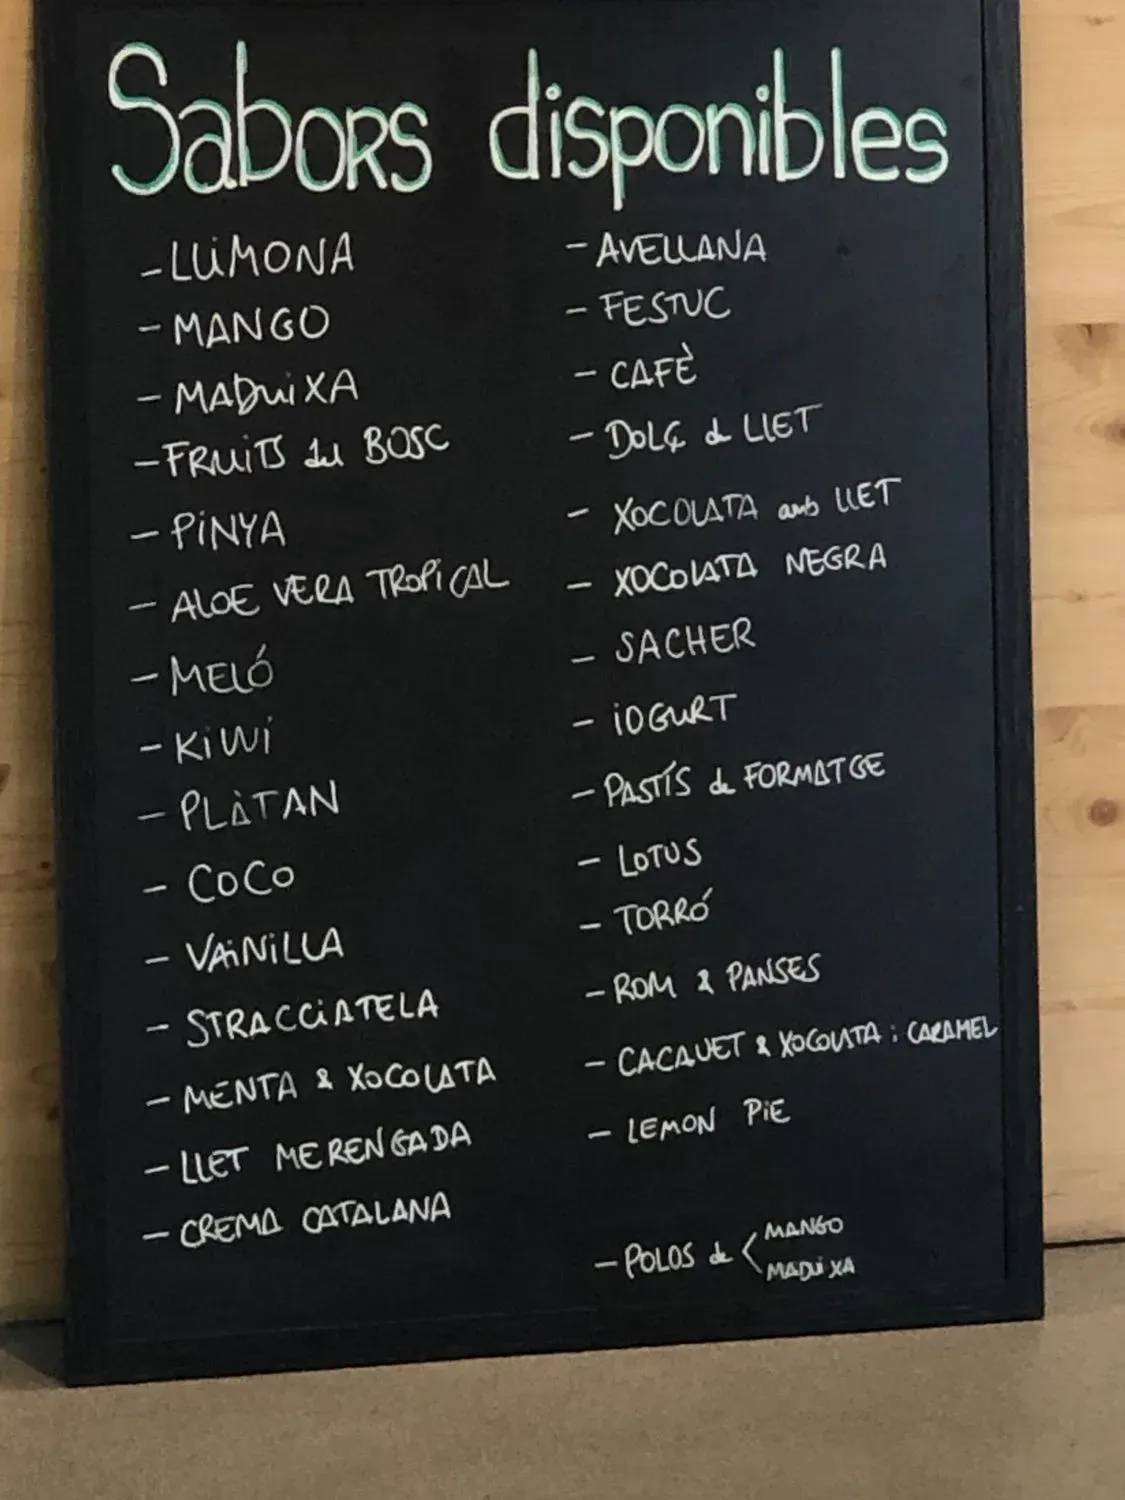 Sabors disponibles
- LLIMONA
- MANGO
- MADUIXA
- FRUITS del BOSC
- PINYA
- ALOE VERA TROPICAL
- MELÓ
- KIWI
- PLÀTAN
- COCO
- VAINILLA
- STRACCIATELA
- MENTA & XOCOLATA
- LLET MERENGADA
- CREMA CATALANA
- AVELLANA
- FESTUC
- CAFÈ
- DOLÇ de LLET
- XOCOLATA amb LLET
- XOCOLATA NEGRA
- SACHER
- IOGURT
- PASTÍS de FORMATGE
- LOTUS
- TORRÓ
- ROM & PANSES
- CACAUET & XOCOLATA i CARAMEL
- LEMON PIE
- POLOS de < MANGO
MADUIXA